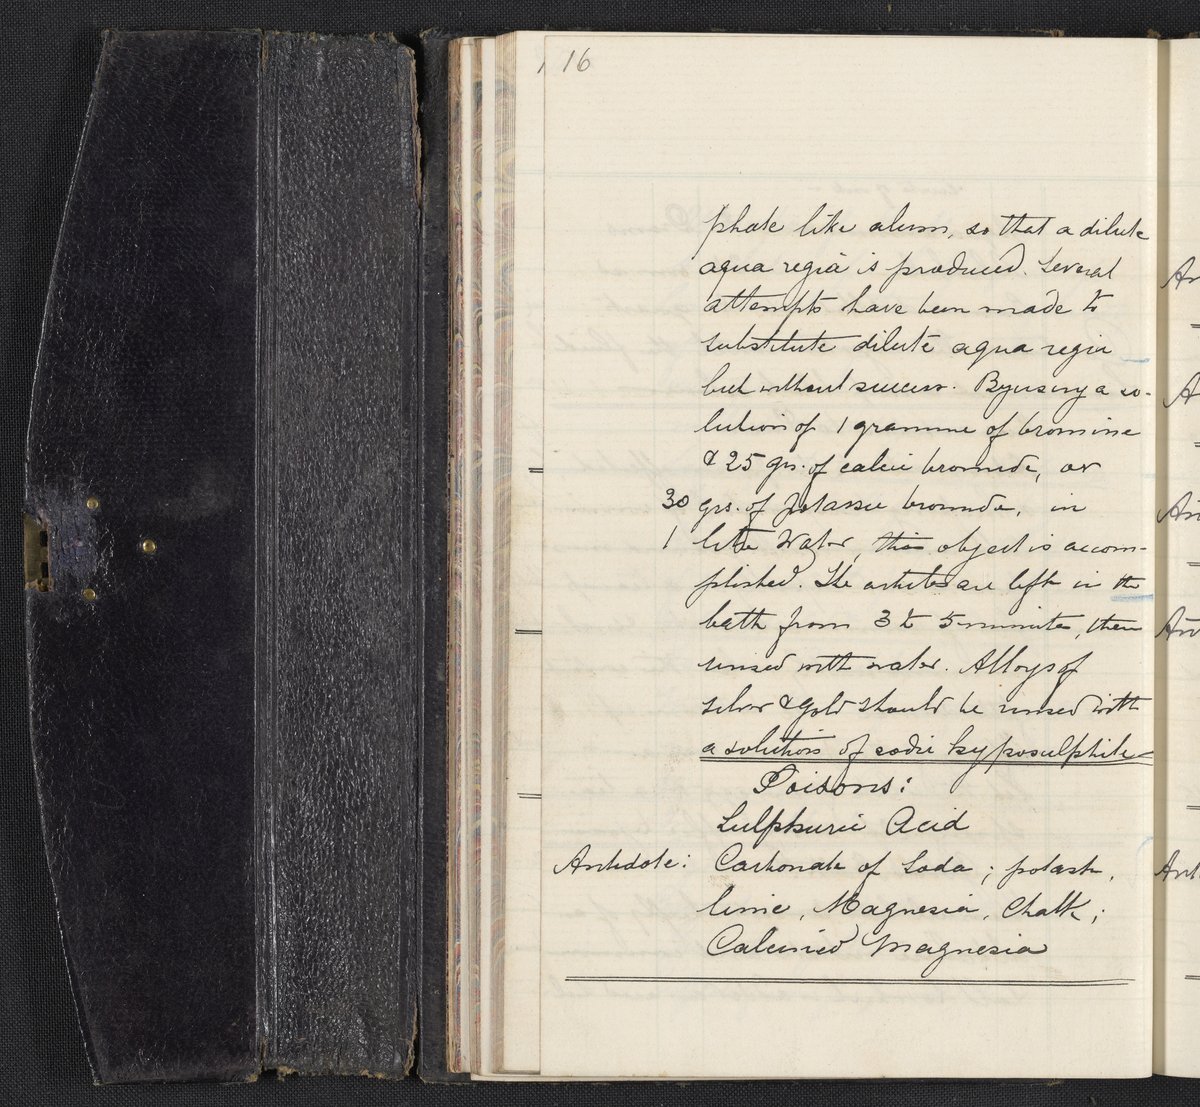 16
phate like alum, so that a dilute
aqua regia is produced. Several
attempts have been made to
substitute dilute aqua regia
but without success. By using a so-
lution of 1 gramme of bromine
& 25 grs. of calcic bromide, or
30 grs. of potassic bromide, in
1 litre Water, this object is accom-
plished. The articles are left in the
bath from 3 to 5 minutes, then
rinsed with water. Alloys of
silver & gold should be rinsed with
a solution of sodic hyposulphite
Poisons:
Sulphuric Acid
Antidote: Carbonate of Soda; potash,
lime, Magnesia, Chalk;
Calcined Magnesia
An
A
An
An
Ant